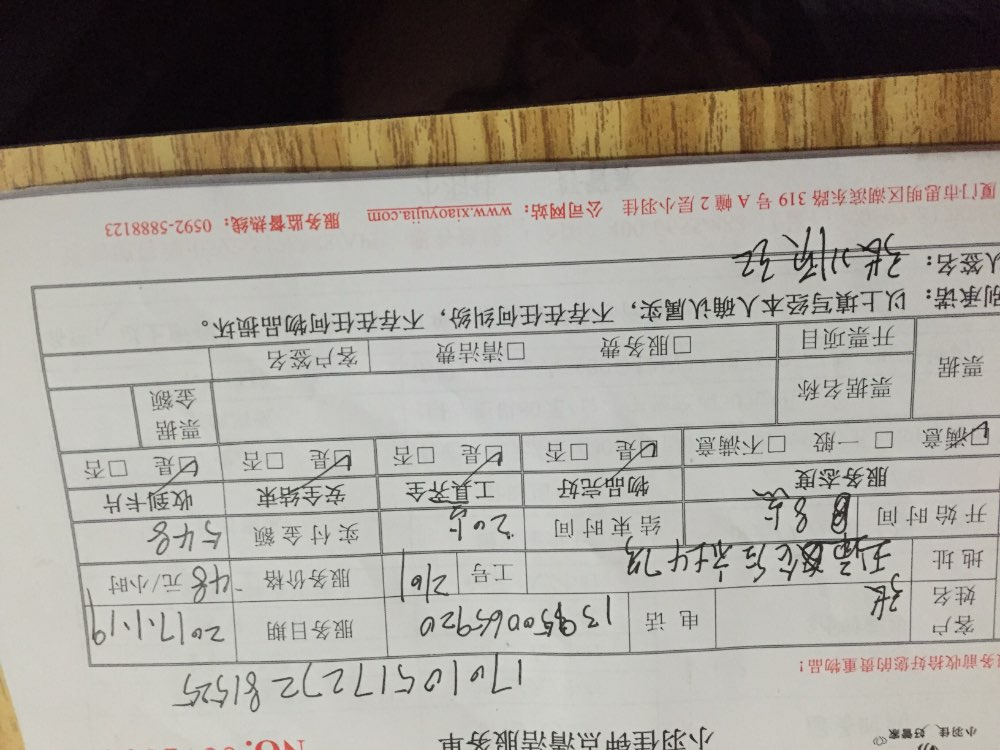 小羽佳 好管家
小羽佳钟点清洁服务单 NO.
务前收拾好您的贵重物品!
1701051727281525
客户姓名 张 电话 13950065920 服务日期 2017.1.19
地址 工号 2161 服务价格 48元/小时
开始时间 8点 结束时间 20点 实付金额 548
服务态度 物品完好 工具齐全 安全结束 收到卡片
☑满意 □一般 □不满意 ☑是 □否 ☑是 □否 ☑是 □否 ☑是 □否
票据 票据名称 票据金额
开票项目 □服务费 □清洁费 客户签名
别承诺:以上填写经本人确认属实,不存在任何纠纷,不存在任何物品损坏。
人签名:
厦门市思明区湖滨东路 319 号 A 幢 2 层小羽佳 公司网站:www.xiaoyujia.com 服务监督热线:0592-5888123